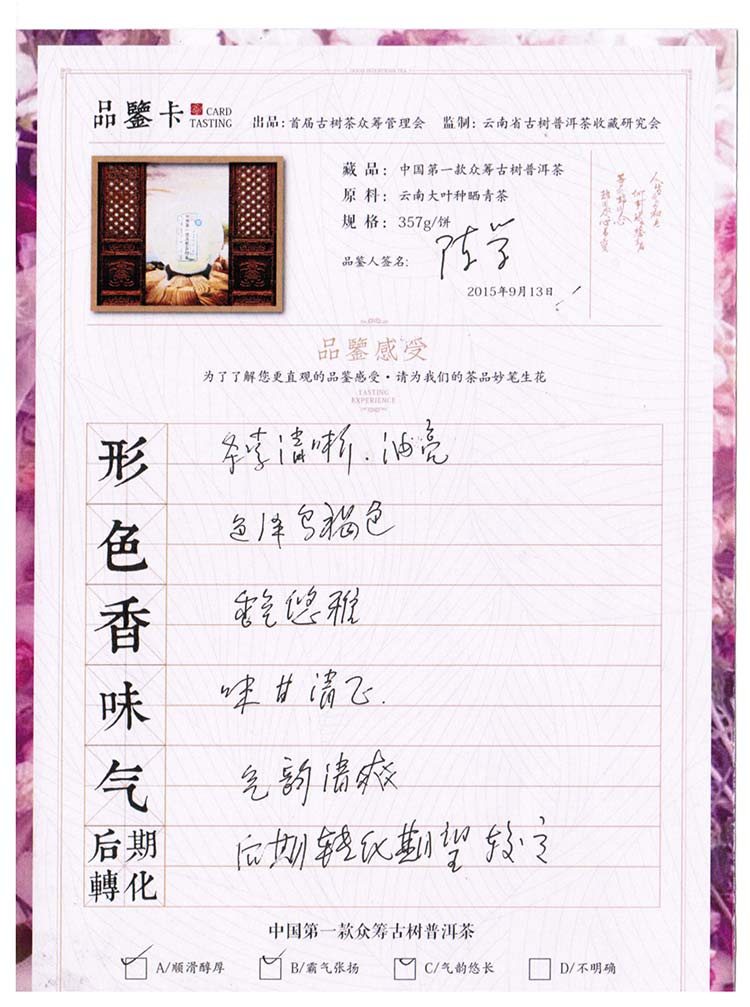 品鑒卡 CARD TASTING 出品:首届古树茶众筹管理会 监制:云南省古树普洱茶收藏研究会
藏品:中国第一款众筹古树普洱茶
原料:云南大叶种晒青茶
规格:357g/饼
品鉴人签名:
2015年9月13日
品鑒感受
为了了解您更直观的品鉴感受·请为我们的茶品妙笔生花
TASTING
EXPERIENCE
形 条索清晰.油亮
色 色泽乌褐色
香 香气悠雅
味 味甘清
气 气韵清爽
后期轉化 后期转化期望较高
中国第一款众筹古树普洱茶
A/顺滑醇厚 B/霸气张扬 C/气韵悠长 D/不明确